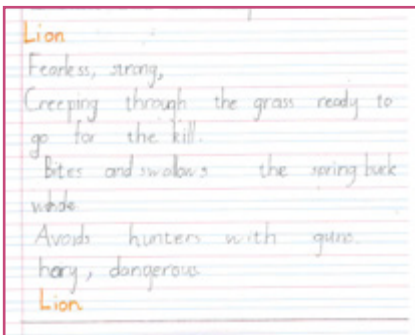 Lion
Fearless, strong,
Creeping through the grass ready to
go for the kill.
Bites and swallows the spring buck
whole
Avoids hunters with guns.
hery, dangerous
Lion